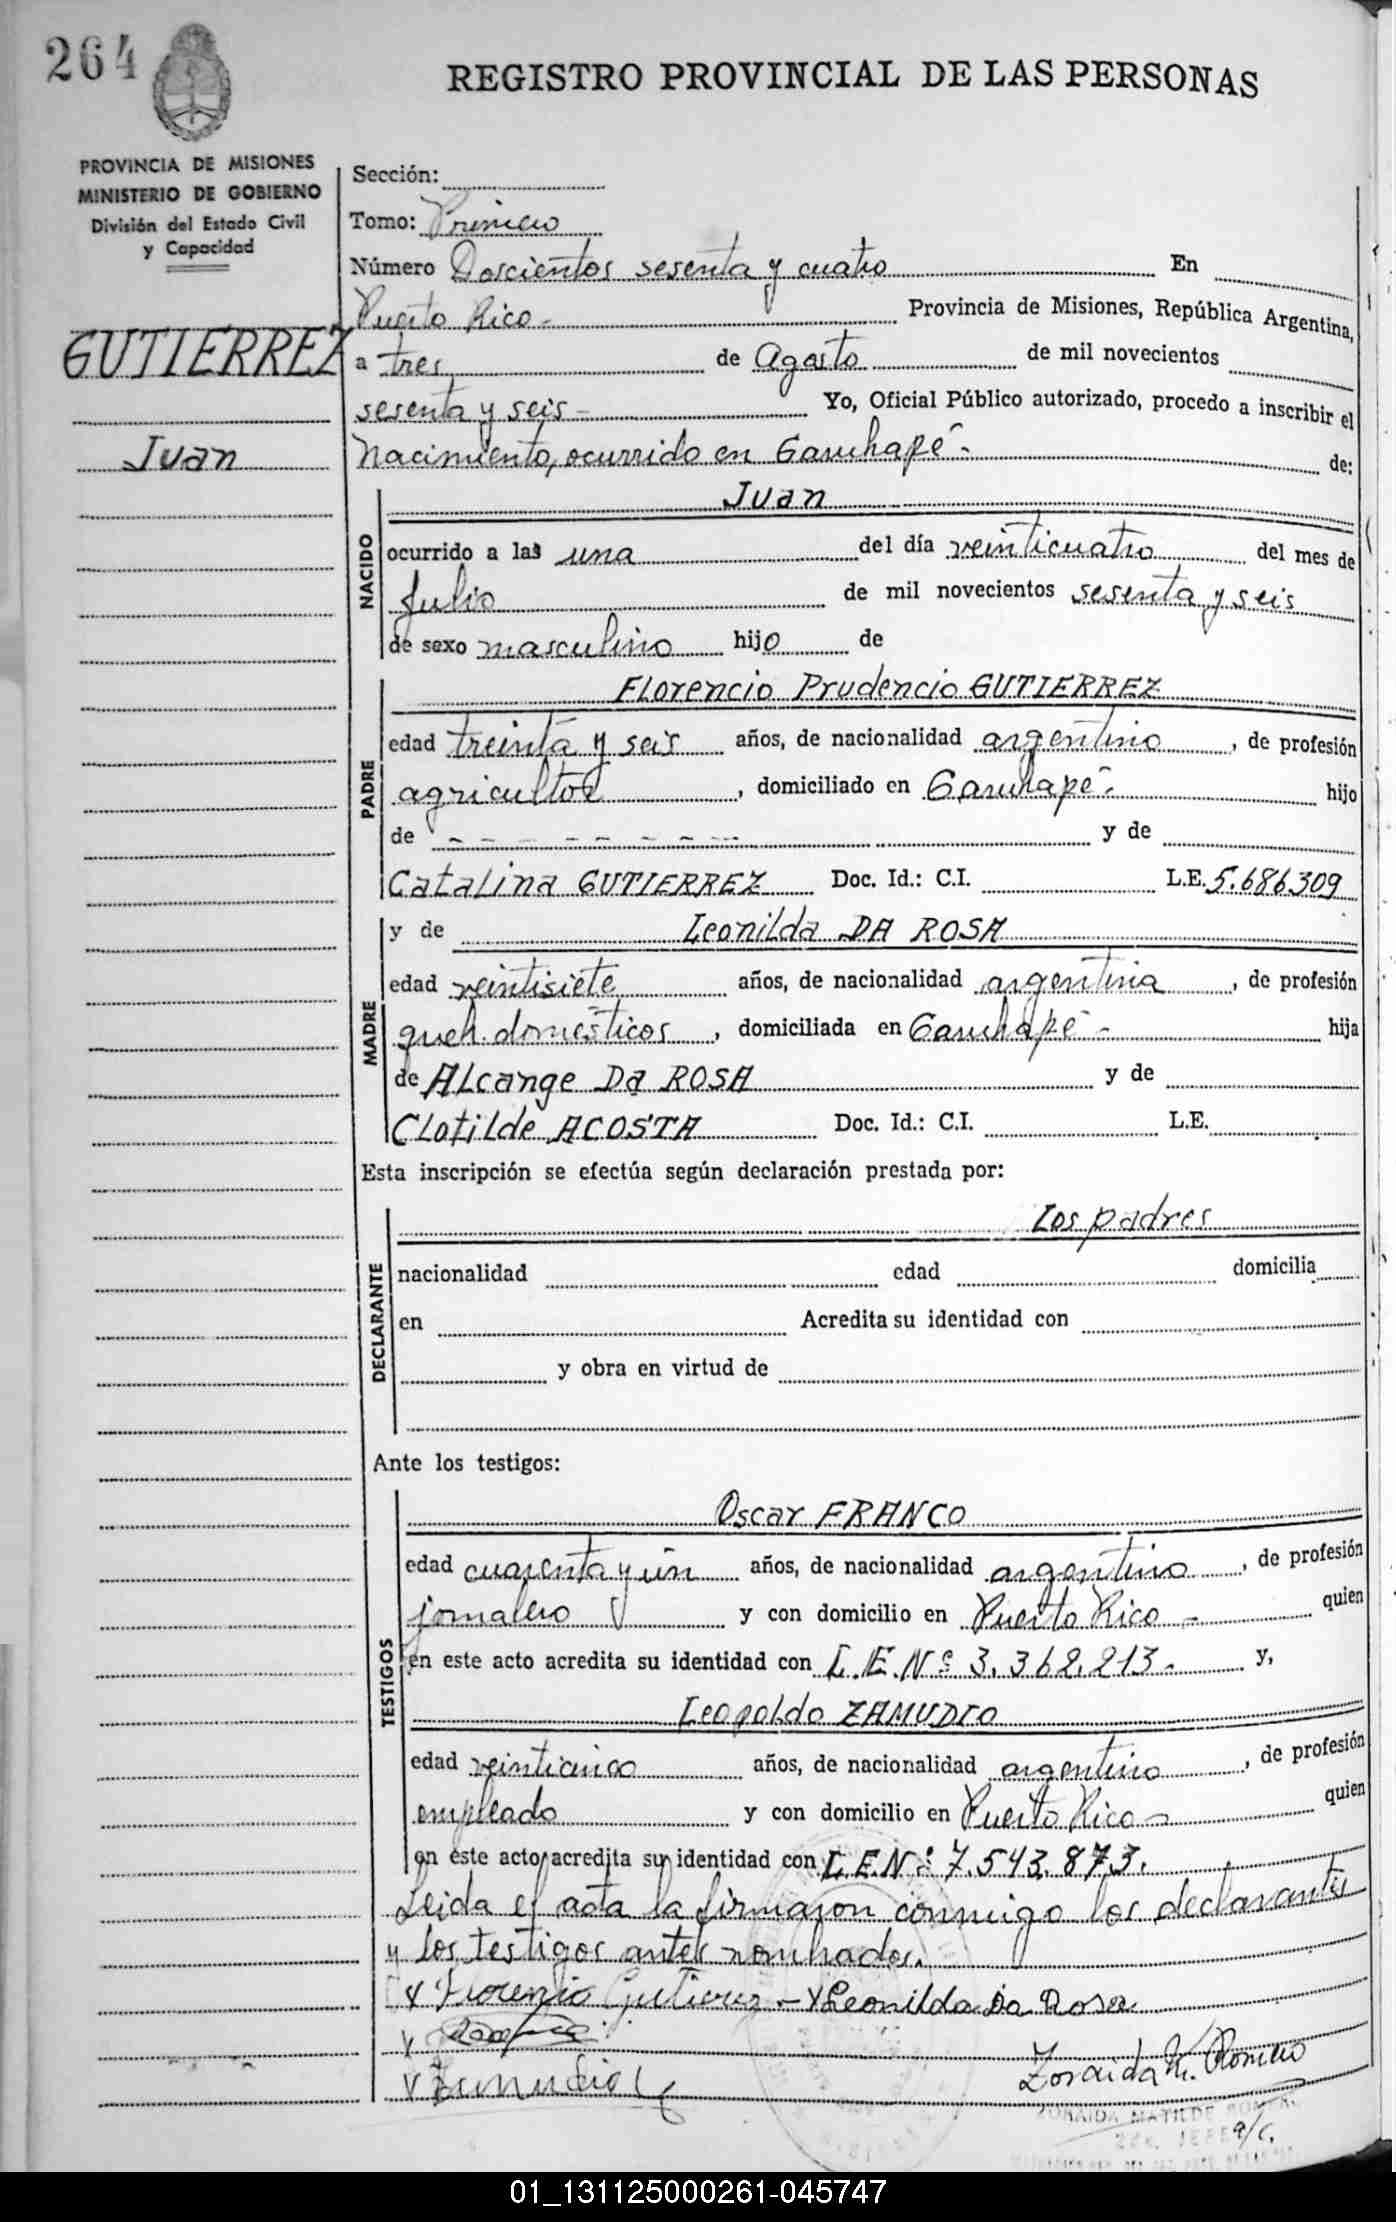 264
REGISTRO PROVINCIAL DE LAS PERSONAS
PROVINCIA DE MISIONES
MINISTERIO DE GOBIERNO
División del Estado Civil
y Capacidad
GUTIERREZ
Juan
Sección:
Tomo: Primero
Número Doscientos sesenta y cuatro En
Puerto Rico - Provincia de Misiones, República Argentina,
a tres de Agosto de mil novecientos
sesenta y seis - Yo, Oficial Público autorizado, procedo a inscribir el
Nacimiento, ocurrido en Garuhapé - de:
NACIDO
Juan
ocurrido a las una del día veinticuatro del mes de
Julio de mil novecientos sesenta y seis
de sexo masculino hijo de
PADRE
Florencio Prudencio GUTIERREZ
edad treinta y seis años, de nacionalidad argentino, de profesión
agricultor, domiciliado en Garuhapé - hijo
de - - - - - - - - y de
Catalina GUTIERREZ Doc. Id.: C.I. L.E. 5.686.309
MADRE
y de Leonilda DA ROSA
edad veintisiete años, de nacionalidad argentina, de profesión
queh. domésticos, domiciliada en Garuhapé - hija
de Alcange Da ROSA y de
Clotilde ACOSTA Doc. Id.: C.I. L.E.
Esta inscripción se efectúa según declaración prestada por:
DECLARANTE
Los padres
nacionalidad edad domicilia
en Acredita su identidad con
y obra en virtud de
Ante los testigos:
TESTIGOS
Oscar FRANCO
edad cuarenta y un años, de nacionalidad argentino, de profesión
jornalero y con domicilio en Puerto Rico - quien
en este acto acredita su identidad con L.E.Nº 3.362.213. y,
Leopoldo ZAMUDIO
edad veinticinco años, de nacionalidad argentino, de profesión
empleado y con domicilio en Puerto Rico - quien
en este acto acredita su identidad con L.E.Nº 7.543.873.
Leida el acta la firmaron conmigo los declarantes
y los testigos antes nombrados.
x Florencio Gutierrez - x Leonilda Da Rosa
x
x Zamudio
Zoraida M. Romero
ZORAIDA MATILDE ROMERO
JEFE a/c.
01_131125000261-045747